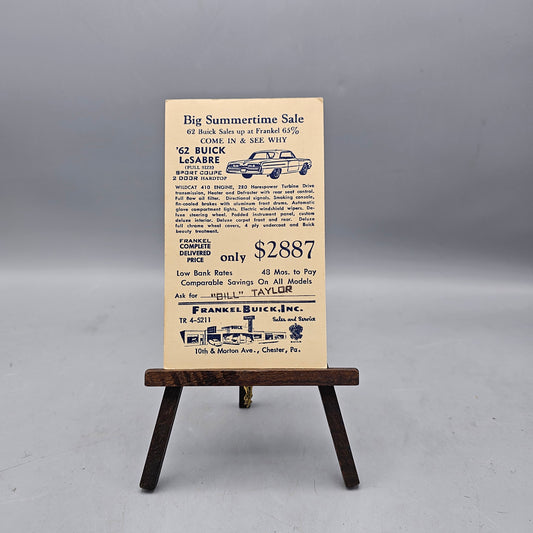 Big Summertime Sale
62 Buick Sales up at Frankel 65%
COME IN & SEE WHY
'62 BUICK
LeSABRE
(FULL SIZE)
SPORT COUPE
2 DOOR HARDTOP
WILDCAT 410 ENGINE, 280 Horsepower Turbine Drive
transmission, Heater and Defroster with rear seat control.
Full flow oil filter. Directional signals, Smoking console,
fin-cooled brakes with aluminum front drums. Automatic
glove compartment lights. Electric windshield wipers. De-
luxe steering wheel. Padded instrument panel, custom
deluxe interior. Deluxe carpet front and rear. Deluxe
full chrome wheel covers, 4 ply undercoat and Buick
beauty treatment.
FRANKEL
COMPLETE
DELIVERED
PRICE
only $2887
Low Bank Rates 48 Mos. to Pay
Comparable Savings On All Models
Ask for "BILL" TAYLOR
FRANKEL BUICK, INC.
TR 4-5211 Sales and Service
BUICK
10th & Morton Ave., Chester, Pa.